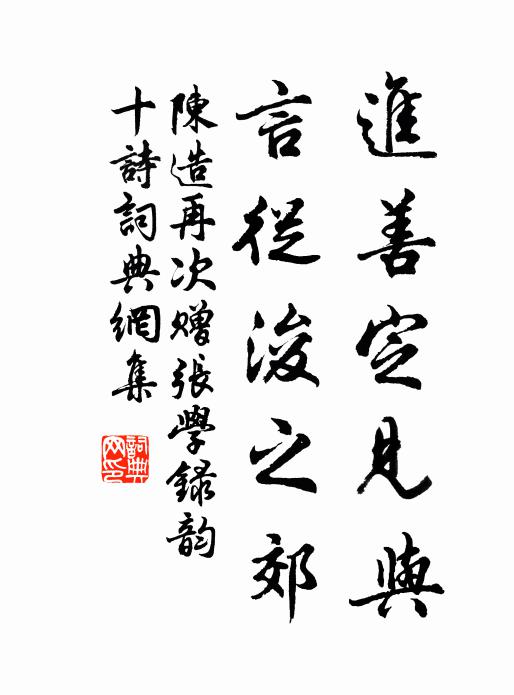 進善定見與
言從浚之郊
陳造再次贈張學録韵
十詩詞典網集
詞典網印